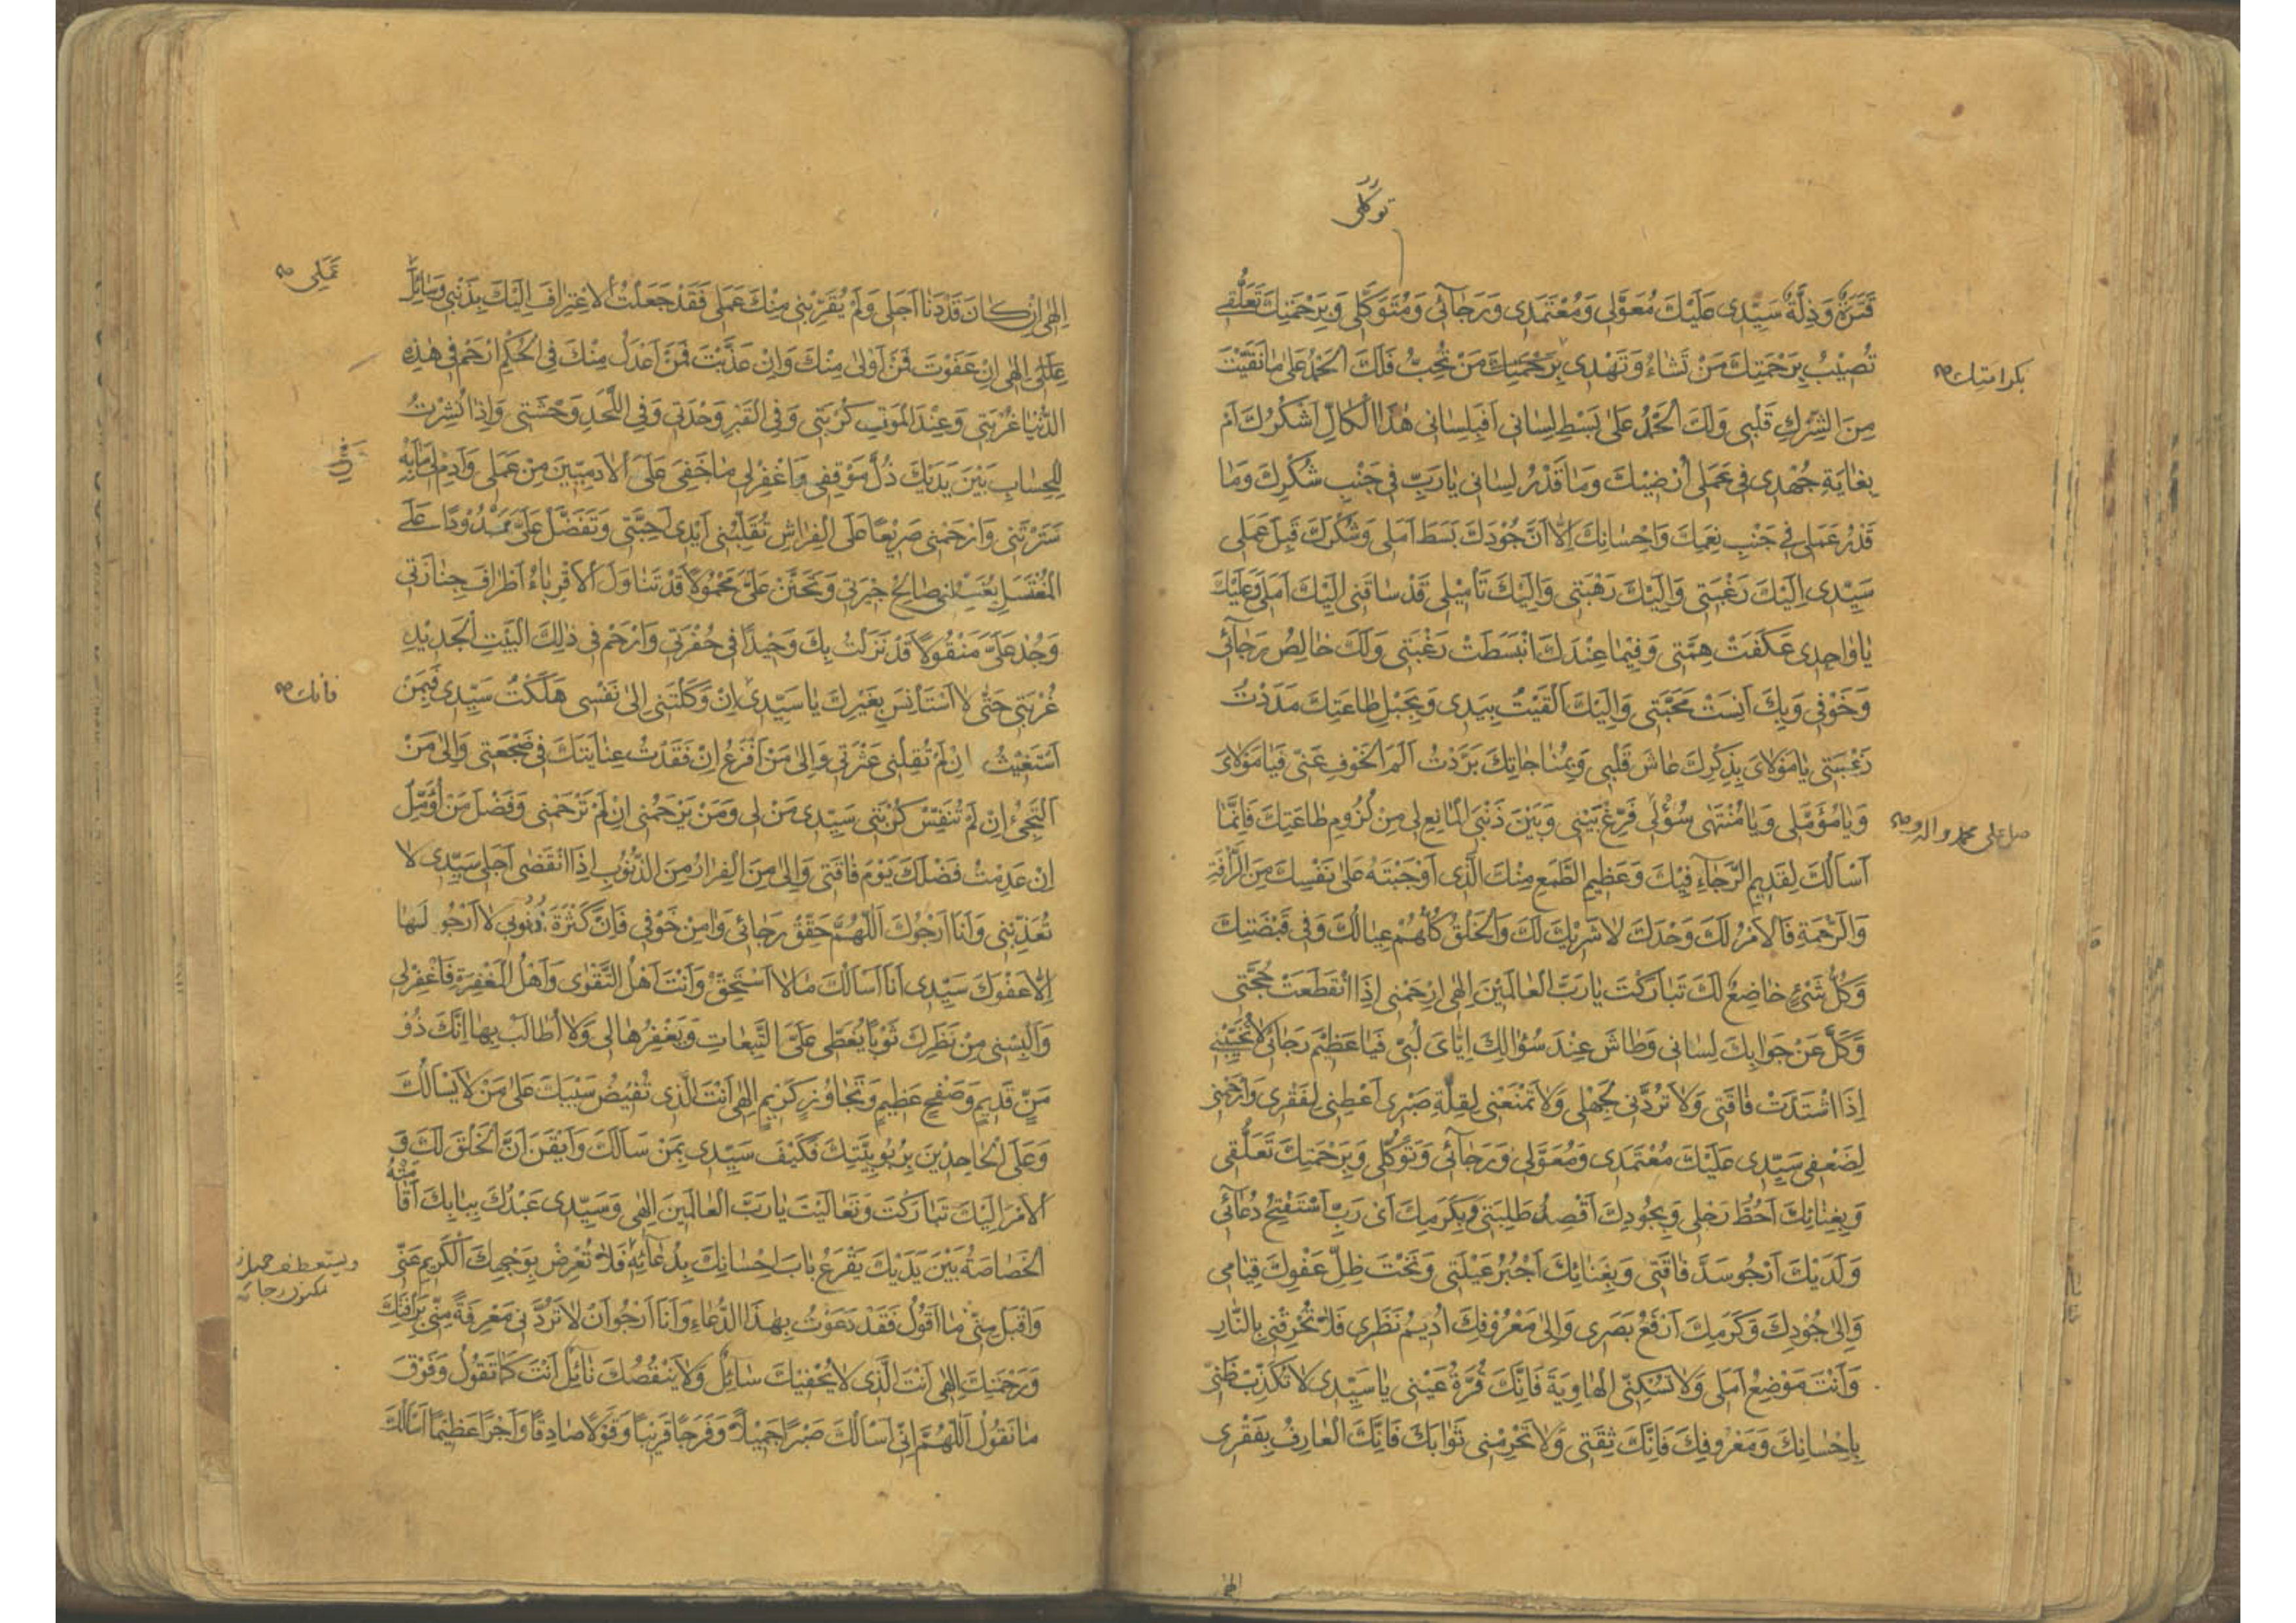 توكلي
قَتَرَةٌ وَذِلَّةٌ سَيِّدِى عَلَيْكَ مُعَوَّلِى وَمُعْتَمَدِى وَرَجَآئِى وَمُتَوَكَّلِى وَبِرَحْمَتِكَ تَعَلُّقِى
تُصِيْبُ بِرَحْمَتِكَ مَنْ تَشَاءُ وَتَهْدِى بِرَحْمَتِكَ مَنْ تُحِبُّ فَلَكَ الْحَمْدُ عَلَى مَا نَقَّيْتَ
بكرامتك صح
مِنَ الشِّرْكِ قَلْبِى وَلَكَ الْحَمْدُ عَلَى بَسْطِ لِسَانِى اَفَبِلِسَانِى هٰذَا الْكَالِّ اَشْكُرُكَ اَمْ
بِغَايَةِ جُهْدِى فِى عَمَلِى اُرْضِيْكَ وَمَا قَدْرُ لِسَانِى يَارَبِّ فِى جَنْبِ شُكْرِكَ وَمَا
قَدْرُ عَمَلِى فِى جَنْبِ نِعَمِكَ وَاِحْسَانِكَ اِلَّا اَنَّ جُوْدَكَ بَسَطَ اَمَلِى وَشُكْرَكَ قَبِلَ عَمَلِى
سَيِّدِى اِلَيْكَ رَغْبَتِى وَاِلَيْكَ رَهْبَتِى وَاِلَيْكَ تَأْمِيْلِى قَدْ سَاقَنِى اِلَيْكَ اَمَلِى وَعَلَيْكَ
يَا وَاحِدِى عَكَفَتْ هِمَّتِى وَفِيْمَا عِنْدَكَ انْبَسَطَتْ رَغْبَتِى وَلَكَ خَالِصُ رَجَآئِى
وَخَوْفِى وَبِكَ اَنِسَتْ مَحَبَّتِى وَاِلَيْكَ اَلْقَيْتُ بِيَدِى وَبِحَبْلِ طَاعَتِكَ مَدَدْتُ
رَغْبَتِى يَا مَوْلَاىَ بِذِكْرِكَ عَاشَ قَلْبِى وَبِمُنَاجَاتِكَ بَرَّدْتُ اَلَمَ الْخَوْفِ عَنِّى فَيَا مَوْلَاىَ
وَيَا مُؤَمَّلِى وَيَا مُنْتَهٰى سُؤْلِى فَرِّغْ بَيْنِى وَبَيْنَ ذَنْبِىَ الْمَانِعِ لِى مِنْ لُزُوْمِ طَاعَتِكَ فَاِنَّمَا
صل على محمد واله و صح
اَسْاَلُكَ لِقَدِيْمِ الرَّجَآءِ فِيْكَ وَعَظِيْمِ الطَّمَعِ مِنْكَ الَّذِى اَوْجَبْتَهُ عَلَى نَفْسِكَ مِنَ الرَّأْفَةِ
وَالرَّحْمَةِ فَالْاَمْرُ لَكَ وَحْدَكَ لَا شَرِيْكَ لَكَ وَالْخَلْقُ كُلُّهُمْ عِيَالُكَ وَفِى قَبْضَتِكَ
وَكُلُّ شَىْءٍ خَاضِعٌ لَكَ تَبَارَكْتَ يَا رَبَّ الْعَالَمِيْنَ اِلٰهِى ارْحَمْنِى اِذَا انْقَطَعَتْ حُجَّتِى
وَكَلَّ عَنْ جَوَابِكَ لِسَانِى وَطَاشَ عِنْدَ سُؤَالِكَ اِيَّاىَ لُبِّىْ فَيَا عَظِيْمَ رَجَائِى لَا تُخَيِّبْنِى
اِذَا اشْتَدَّتْ فَاقَتِى وَلَا تَرُدَّنِى لِجَهْلِى وَلَا تَمْنَعْنِى لِقِلَّةِ صَبْرِى اَعْطِنِى لِفَقْرِى وَارْحَمْنِى
لِضَعْفِى سَيِّدِى عَلَيْكَ مُعْتَمَدِى وَمُعَوَّلِى وَرَجَآئِى وَتَوَكُّلِى وَبِرَحْمَتِكَ تَعَلُّقِى
وَبِفِنَائِكَ اَحُطُّ رَحْلِى وَبِجُودِكَ اَقْصِدُ طَلِبَتِى وَبِكَرَمِكَ اَىْ رَبِّ اَسْتَفْتِحُ دُعَآئِى
وَلَدَيْكَ اَرْجُو سَدَّ فَاقَتِى وَبِغَنَائِكَ اَجْبُرُ عَيْلَتِى وَتَحْتَ ظِلِّ عَفْوِكَ قِيَامِى
وَاِلَى جُوْدِكَ وَكَرَمِكَ اَرْفَعُ بَصَرِى وَاِلَى مَعْرُوْفِكَ اُدِيْمُ نَظَرِى فَلَا تُحْرِقْنِى بِالنَّارِ
وَاَنْتَ مَوْضِعُ اَمَلِى وَلَا تُسْكِنِّى الْهَاوِيَةَ فَاِنَّكَ قُرَّةُ عَيْنِى يَا سَيِّدِى لَا تُكَذِّبْ ظَنِّى
بِاِحْسَانِكَ وَمَعْرُوفِكَ فَاِنَّكَ ثِقَتِى وَلَا تَحْرِمْنِى ثَوَابَكَ فَاِنَّكَ الْعَارِفُ بِفَقْرِى
الهى
اِلٰهِى اِنْ كَانَ قَدْ دَنَا اَجَلِى وَلَمْ يُقَرِّبْنِى مِنْكَ عَمَلِى فَقَدْ جَعَلْتُ الْاِعْتِرَافَ اِلَيْكَ بِذَنْبِى وَسَائِلَ
عملي صح
عِلَلِى اِلٰهِى اِنْ عَفَوْتَ فَمَنْ اَوْلٰى مِنْكَ وَاِنْ عَذَّبْتَ فَمَنْ اَعْدَلُ مِنْكَ فِى الْحُكْمِ ارْحَمْ فِى هٰذِهِ
الدُّنْيَا غُرْبَتِى وَعِنْدَ الْمَوْتِ كُرْبَتِى وَفِى الْقَبْرِ وَحْدَتِى وَفِى اللَّحْدِ وَحْشَتِى وَاِذَا نُشِرْتُ
لِلْحِسَابِ بَيْنَ يَدَيْكَ ذُلَّ مَوْقِفِى وَاغْفِرْلِى مَا خَفِىَ عَلَى الْاٰدَمِيِّيْنَ مِنْ عَمَلِى وَاَدِمْ لِى مَا بِهِ
سَتَرْتَنِى وَارْحَمْنِى صَرِيْعًا عَلَى الْفِرَاشِ تُقَلِّبُنِى اَيْدِى اَحِبَّتِى وَتَفَضَّلْ عَلَىَّ مَمْدُوْدًا عَلَى
الْمُغْتَسَلِ يُغَسِّلُنِى صَالِحُ جِيْرَتِى وَتَحَنَّنْ عَلَىَّ مَحْمُوْلًا قَدْ تَنَاوَلَ الْاَقْرِبَاءُ اَطْرَافَ جِنَازَتِى
وَجُدْ عَلَىَّ مَنْقُوْلًا قَدْ نَزَلْتُ بِكَ وَحِيْدًا فِى حُفْرَتِى وَارْحَمْ فِى ذٰلِكَ الْبَيْتِ الْجَدِيْدِ
غُرْبَتِى حَتّٰى لَا اَسْتَاْنِسَ بِغَيْرِكَ يَا سَيِّدِى اِنْ وَكَلْتَنِى اِلٰى نَفْسِى هَلَكْتُ سَيِّدِى فَبِمَنْ
فانك صح
اَسْتَغِيْثُ اِنْ لَمْ تُقِلْنِى عَثْرَتِى وَاِلٰى مَنْ اَفْزَعُ اِنْ فَقَدْتُ عِنَايَتَكَ فِى ضَجْعَتِى وَاِلٰى مَنْ
اَلْتَجِئُ اِنْ لَمْ تُنَفِّسْ كُرْبَتِى سَيِّدِى مَنْ لِى وَمَنْ يَرْحَمُنِى اِنْ لَمْ تَرْحَمْنِى وَفَضْلَ مَنْ اُؤَمِّلُ
اِنْ عَدِمْتُ فَضْلَكَ يَوْمَ فَاقَتِى وَاِلٰى مَنِ الْفِرَارُ مِنَ الذُّنُوْبِ اِذَا انْقَضٰى اَجَلِى سَيِّدِى لَا
تُعَذِّبْنِى وَاَنَا اَرْجُوْكَ اَللّٰهُمَّ حَقِّقْ رَجَائِى وَاٰمِنْ خَوْفِى فَاِنَّ كَثْرَةَ ذُنُوْبِى لَا اَرْجُو لَهَا
اِلَّا عَفْوَكَ سَيِّدِى اَنَا اَسْاَلُكَ مَا لَا اَسْتَحِقُّ وَاَنْتَ اَهْلُ التَّقْوٰى وَاَهْلُ الْمَغْفِرَةِ فَاغْفِرْلِى
وَاَلْبِسْنِى مِنْ نَظَرِكَ ثَوْبًا يُغَطِّى عَلَىَّ التَّبِعَاتِ وَيَغْفِرُهَا لِى وَلَا اُطَالَبُ بِهَا اِنَّكَ ذُوْ
مَنٍّ قَدِيْمٍ وَصَفْحٍ عَظِيْمٍ وَتَجَاوُزٍ كَرِيْمٍ اِلٰهِى اَنْتَ الَّذِى تُفِيْضُ سَيْبَكَ عَلٰى مَنْ لَا يَسْاَلُكَ
وَعَلَى الْجَاحِدِيْنَ بِرُبُوْبِيَّتِكَ فَكَيْفَ سَيِّدِى بِمَنْ سَاَلَكَ وَاَيْقَنَ اَنَّ الْخَلْقَ لَكَ وَ
الْاَمْرَ اِلَيْكَ تَبَارَكْتَ وَتَعَالَيْتَ يَا رَبَّ الْعَالَمِيْنَ اِلٰهِى وَسَيِّدِى عَبْدُكَ بِبَابِكَ اَقَامَتْهُ
الْخَصَاصَةُ بَيْنَ يَدَيْكَ يَقْرَعُ بَابَ اِحْسَانِكَ بِدُعَآئِهِ فَلَا تُعْرِضْ بِوَجْهِكَ الْكَرِيْمِ عَنِّى
ويستعطف جميل نظرك
مكنون رجائه
وَاقْبَلْ مِنِّى مَا اَقُوْلُ فَقَدْ دَعَوْتُ بِهٰذَا الدُّعَاءِ وَاَنَا اَرْجُوْ اَنْ لَا تَرُدَّنِى مَعْرِفَةً مِنِّى بِرَأْفَتِكَ
وَرَحْمَتِكَ اِلٰهِى اَنْتَ الَّذِى لَا يُحْفِيْكَ سَائِلٌ وَلَا يَنْقُصُكَ نَائِلٌ اَنْتَ كَمَا تَقُوْلُ وَفَوْقَ
مَا نَقُوْلُ اَللّٰهُمَّ اِنِّى اَسْاَلُكَ صَبْرًا جَمِيْلًا وَفَرَجًا قَرِيْبًا وَقَوْلًا صَادِقًا وَاَجْرًا عَظِيْمًا اَسْاَلُكَ